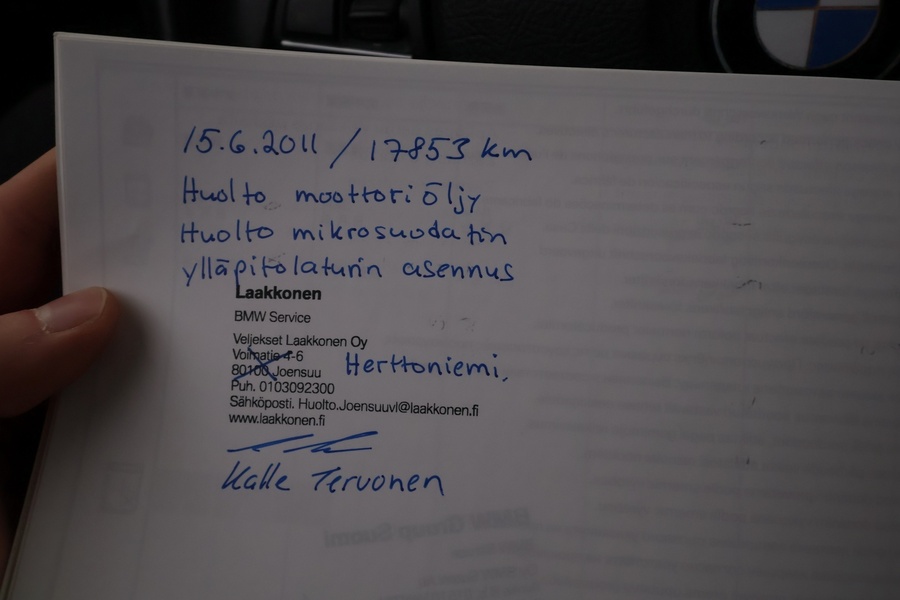 15.6.2011 / 17853 km
Huolto moottori öljy
Huolto mikrosuodatin
ylläpitolaturin asennus
Laakkonen
BMW Service
Veljekset Laakkonen Oy
Voimatie 4-6
80100 Joensuu Herttoniemi,
Puh. 0103092300
Sähköposti. Huolto.Joensuuvl@laakkonen.fi
www.laakkonen.fi
Kalle Tervonen
BMW Group Suomi